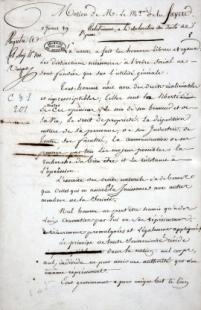 Motion de M. le M.is de la Fayette
a fait les hommes libres et égaux
les distinctions nécessaires à l'ordre social ne
sont fondées que sur l'utilité générale.
Tout homme naît avec des droits inaliénables
et imprescriptibles; telles sont la liberté
le soin de son honneur et de
sa vie, le droit de propriété, la disposition
entière de sa personne, de son industrie, de
toutes ses facultés, la communication de ses
pensées par tous les moyens possibles, la
recherche du bien être et la résistance à
l'oppression.
L'exercice des droits naturels n'a de bornes
que celles qui en assurent la jouissance aux autres
membres de la Société.
Nul homme ne peut être soumis qu'à des
loix consenties par lui ou ses représentans,
antérieurement promulguées et légalement appliquées
Le principe de toute souveraineté réside
dans la nation, nul corps,
nul individu ne peut avoir une autorité qui n'en
émane expressément.
Tout gouvernement a pour unique but le bien